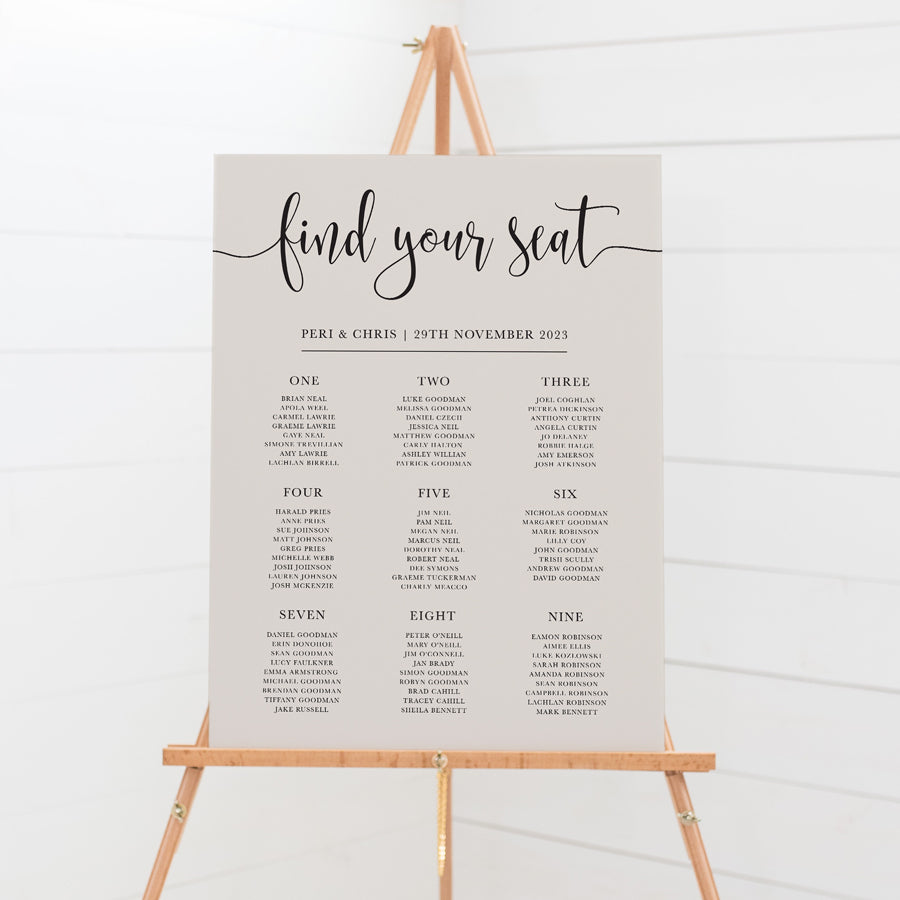 find your seat
PERI & CHRIS | 29TH NOVEMBER 2023
ONE
BRIAN NEAL
APOLA WEEL
CARMEL LAWRIE
GRAEME LAWRIE
GAYE NEAL
SIMONE TREVILLIAN
AMY LAWRIE
LACHLAN BIRRELL
TWO
LUKE GOODMAN
MELISSA GOODMAN
DANIEL CZECH
JESSICA NEIL
MATTHEW GOODMAN
CARLY HALTON
ASHLEY WILLIAN
PATRICK GOODMAN
THREE
JOEL COGHLAN
PETREA DICKINSON
ANTHONY CURTIN
ANGELA CURTIN
JO DELANEY
ROBBIE HALGE
AMY EMERSON
JOSH ATKINSON
FOUR
HARALD PRIES
ANNE PRIES
SUE JOHNSON
MATT JOHNSON
GREG PRIES
MICHELLE WEBB
JOSH JOHNSON
LAUREN JOHNSON
JOSH MCKENZIE
FIVE
JIM NEIL
PAM NEIL
MEGAN NEIL
MARCUS NEIL
DOROTHY NEAL
ROBERT NEAL
DEE SYMONS
GRAEME TUCKERMAN
CHARLY MEACCO
SIX
NICHOLAS GOODMAN
MARGARET GOODMAN
MARIE ROBINSON
LILLY COY
JOHN GOODMAN
TRISH SCULLY
ANDREW GOODMAN
DAVID GOODMAN
SEVEN
DANIEL GOODMAN
ERIN DONOHOE
SEAN GOODMAN
LUCY FAULKNER
EMMA ARMSTRONG
MICHAEL GOODMAN
BRENDAN GOODMAN
TIFFANY GOODMAN
JAKE RUSSELL
EIGHT
PETER O'NEILL
MARY O'NEILL
JIM O'CONNELL
JAN BRADY
SIMON GOODMAN
ROBYN GOODMAN
BRAD CAHILL
TRACEY CAHILL
SHEILA BENNETT
NINE
EAMON ROBINSON
AIMEE ELLIS
LUKE KOZLOWSKI
SARAH ROBINSON
AMANDA ROBINSON
SEAN ROBINSON
CAMPBELL ROBINSON
LACHLAN ROBINSON
MARK BENNETT